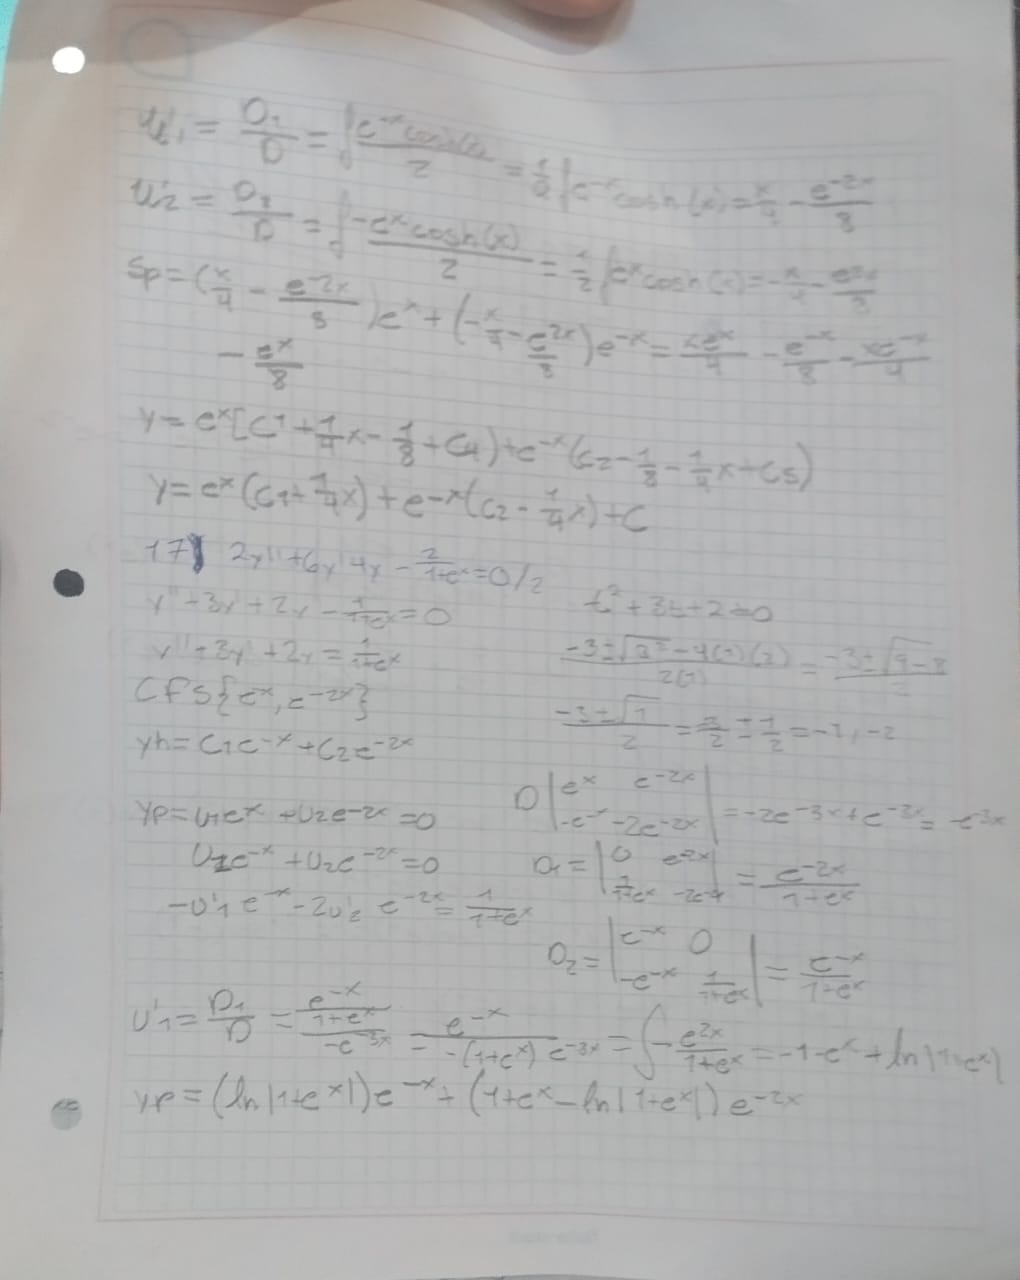 U'1 = D1/D = ∫ e^-x cosh(x)/2 = 1/2 ∫ e^-x cosh(x) = x/4 - e^-2x/8
U'2 = D2/D = ∫ -e^x cosh(x)/2 = 1/2 ∫ e^x cosh(x) = -x/4 - e^2x/8
Sp = (x/4 - e^-2x/8)e^x + (-x/4 - e^2x/8)e^-x = xe^x/4 - e^-x/8 - xe^-x/4
- e^x/8
y = e^x[C1 + 1/4x - 1/8 + C4) + e^-x(C2 - 1/8 - 1/4x + C5)
y = e^x(C1 + 1/4x) + e^-x(C2 - 1/4x) + C
17) 2y'' + 6y' 4y - 2/1+e^x = 0/2
y'' + 3y' + 2y - 1/1+e^x = 0
t^2 + 3t + 2 = 0
y'' + 3y' + 2y = 1/1+e^x
-3±√3^2-4(1)(2)/2(1) = -3±√9-8/2
CFS{e^x, e^-2x}
-3±√1/2 = 3/2 ± 1/2 = -1, -2
yh = C1e^-x + C2e^-2x
D |e^x e^-2x
-e^-x -2e^-2x| = -2e^-3x + e^-3x = -e^3x
yp = U1e^x + U2e^-2x = 0
U1e^-x + U2e^-2x = 0
D1 = |0 e^-2x
1/1+e^x | = e^-2x/1+e^x
-U'1 e^-x - 2U'2 e^-2x = 1/1+e^x
D2 = |e^-x 0
-e^-x 1/1+e^x| = e^-x/1+e^x
U'1 = D1/D = e^-x/1+e^x/-e^-3x = e^-x/-(1+e^x) e^-3x = ∫ -e^2x/1+e^x = -1-e^x + ln|1+e^x|
yp = (ln|1+e^x|)e^-x + (1+e^x - ln|1+e^x|) e^-2x